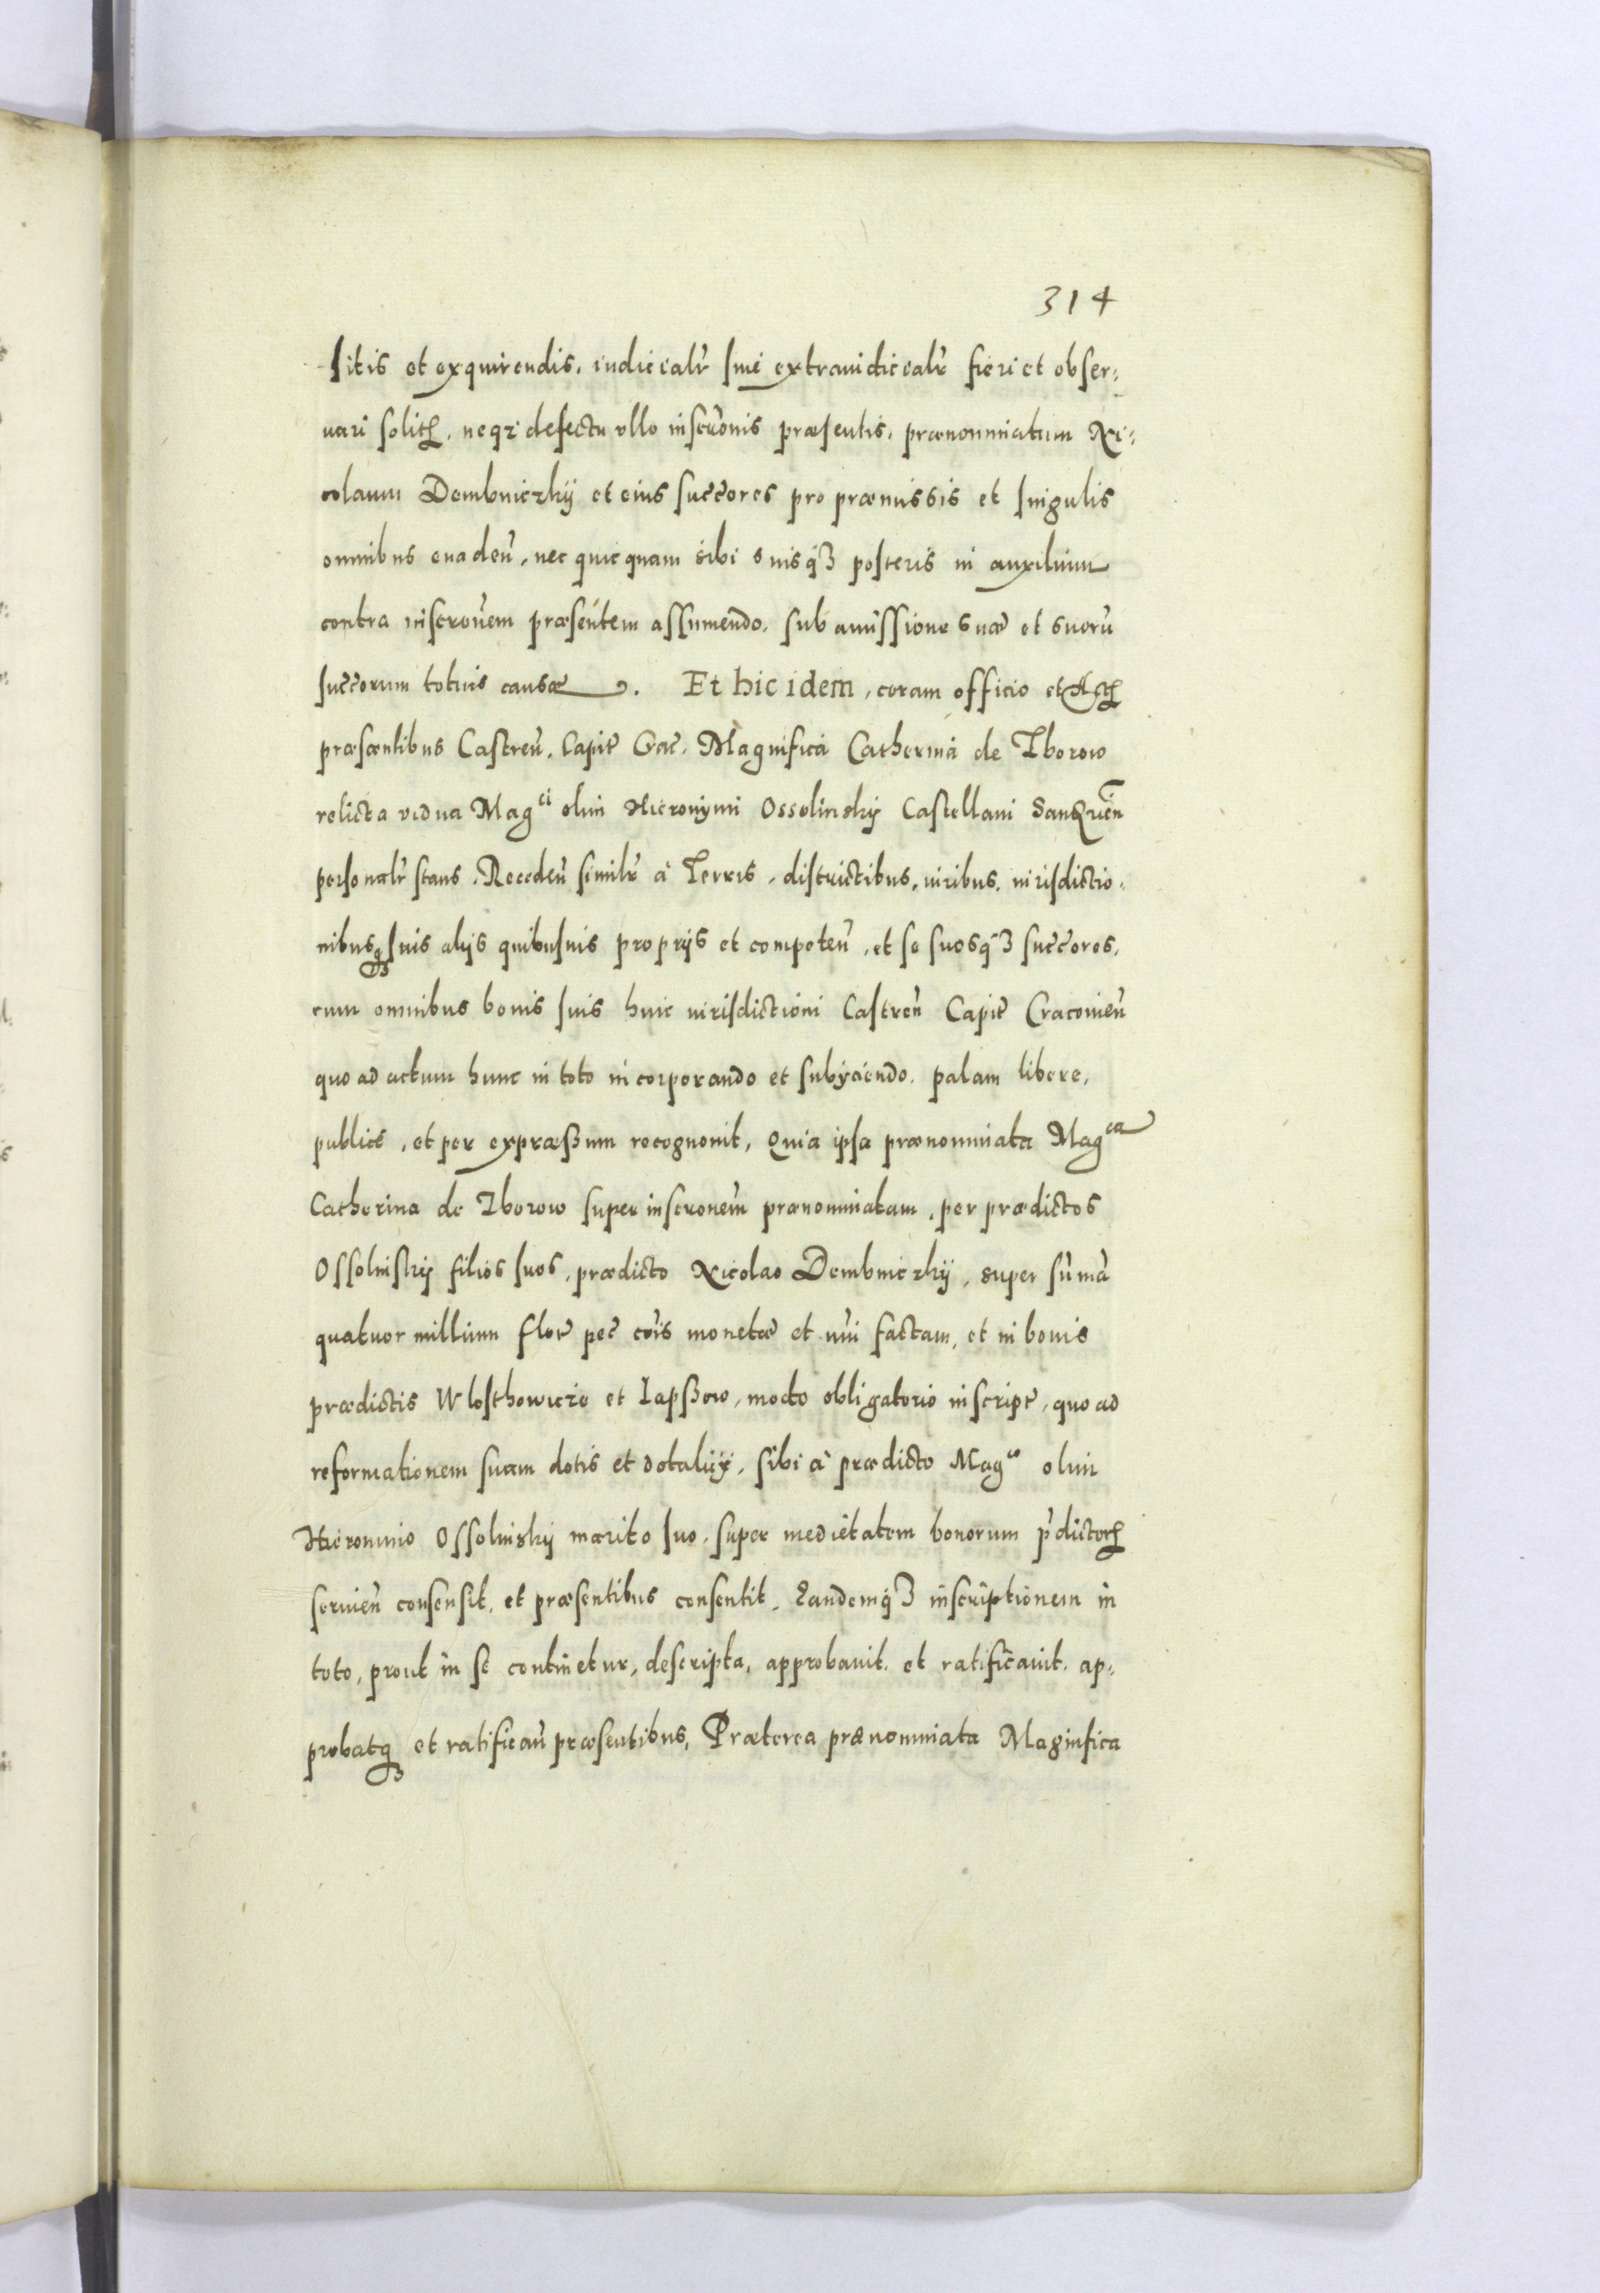 314
sitis et exquirendis, iudicialr̃ siuè extraiudicialr̃ fieri et obser⸗
uari solitꝝ, neqꝫ defectu vllo inscrõnis præsentis, prænominatum Ni⸗
colaum Dembniczkÿ et eius succ̃ores pro præmissis et singulis
omnibus euadeñ, nec quicquam sibi suisqꝫ posteris in auxilium
contra inscrõnem præsentem assumendo, sub amissione suæ et suorũ
succ̃orum totius causæ. Et hic idem, coram officio et Actꝝ
præsentibus Castreñ. Capit̃ Crac̃. Magnifica Catherina de Zborow
relicta vidua Mag^ci olim Hieronymi Ossolinskÿ Castellani Sandecień
personalr̃ stans, Recedeñ similr̃ à Terris, districtibus, iuribus, iurisdictio⸗
nibusqꝫ suis alÿs quibusuis proprÿs et competeñ, et se suosqꝫ succ̃ores,
cum omnibus bonis suis huic iurisdictioni Castreñ Capit̃ Cracouieñ
quo ad actum hunc in toto incorporando et subÿciendo, palam libere,
publicè, et per expræßum recognouit, Quia ipsa prænominata Mag^ca
Catherina de Zborow super inscrõnem prænominatam, per prædictos
Ossolinskÿ filios suos, prædicto Nicolao Dembniczkÿ, super sum̃a
quatuor millium flor̃ pec̃ cõis monetæ et nũi factam, et in bonis
prædictis Wlosthowicze et Iapßow, modo obligatorio inscript̃, quo ad
reformationem suam dotis et dotalicÿ, sibi à prædicto Mag^co olim
Hieronimo Ossolinskÿ marito suo, super medietatem bonorum p̃dictorꝝ
seruieñ consensit, et præsentibus consentit, Eandemqꝫ inscriptionem in
toto, prout in se continetur, descripta, approbauit, et ratificauit, ap⸗
probatqꝫ et ratificañ præsentibus, Præterea prænominata Magnifica